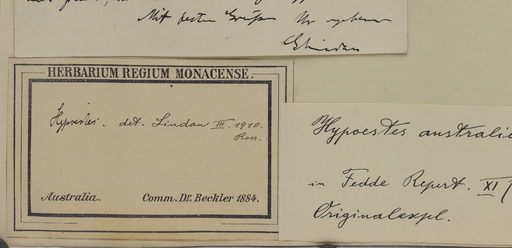 Mit besten Grüßen Ihr ergebener
Lindau
HERBARIUM REGIUM MONACENSE.
Hypoestes. det. Lindau III. 1910.
Ross.
Australia. Comm. Dr. Beckler 1884.
Hypoestes australie
in Fedde Repert. XI
Originalexpl.